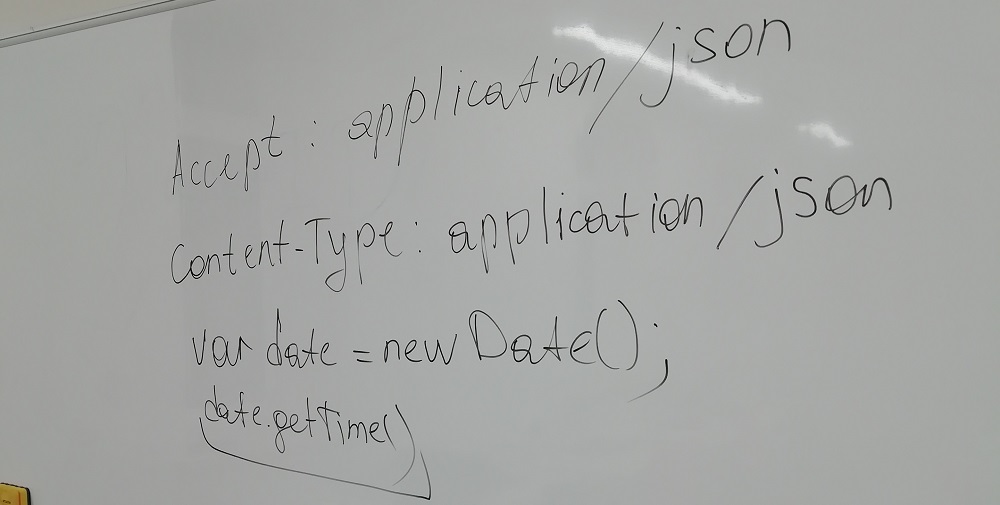 Accept: application/json
Content-Type: application/json
var date = new Date();
date.getTime()